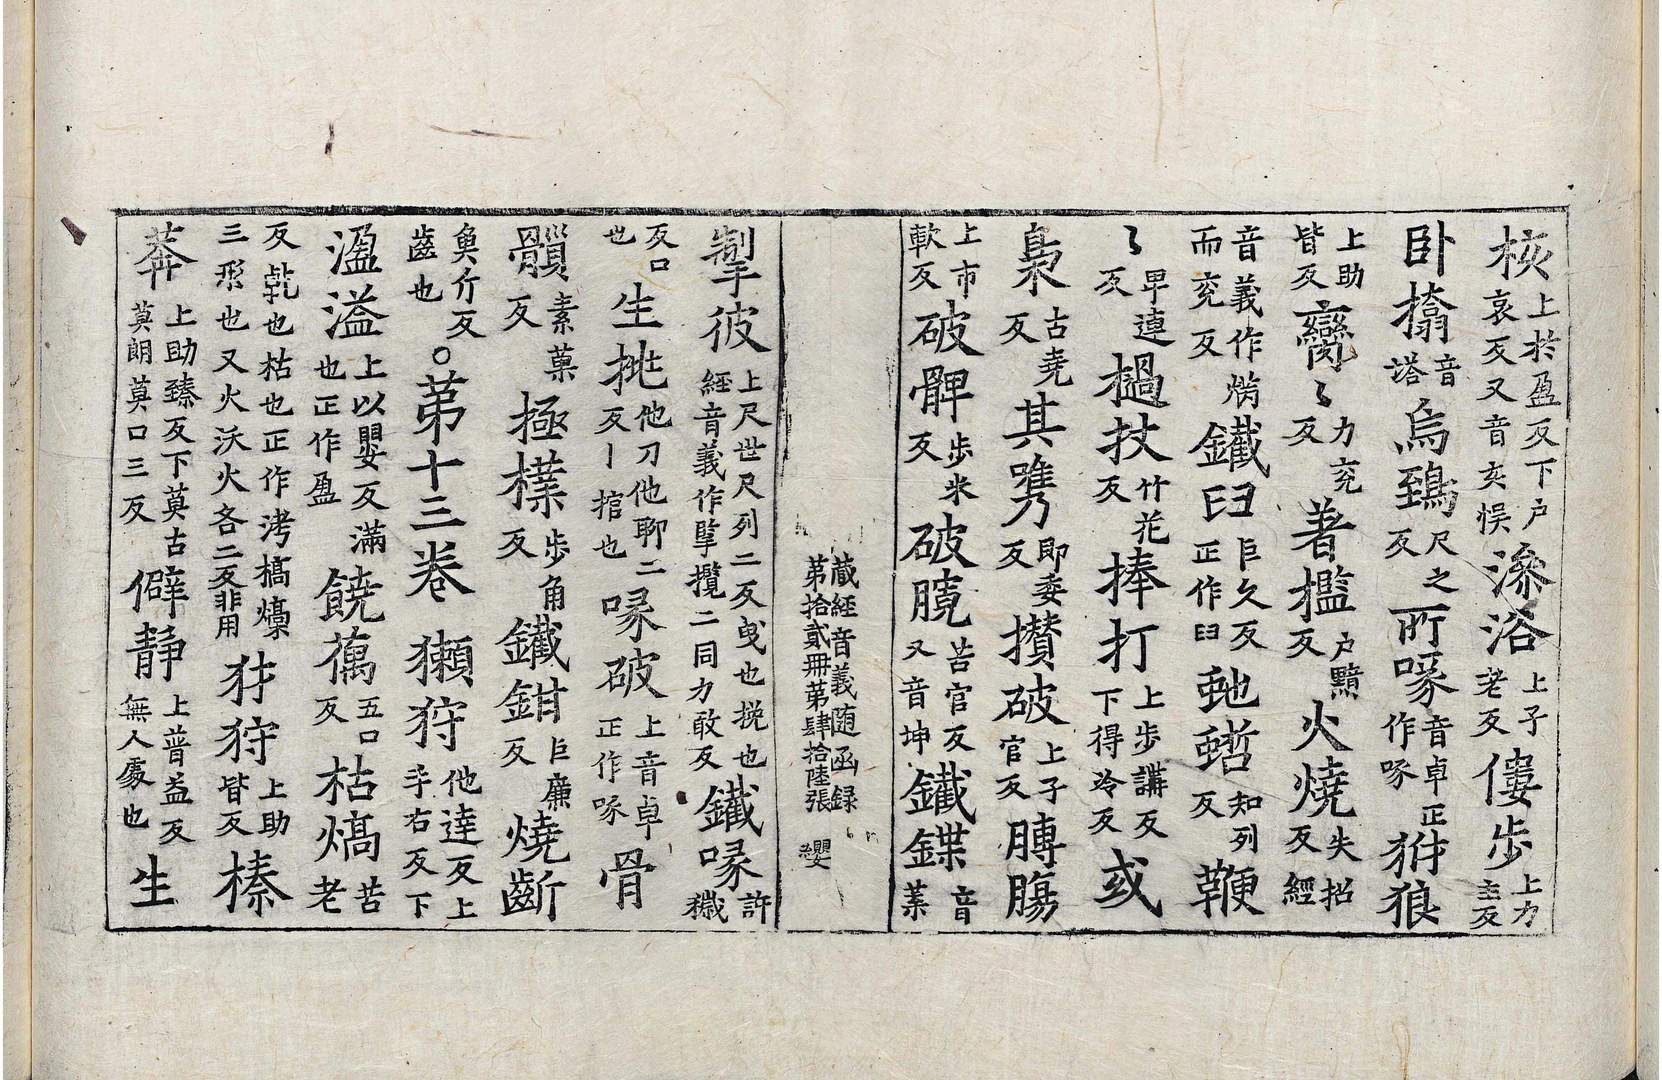 核上於盈反下戶哀反又音亥悮渗浴上子老反僂步上力主反
卧㩉音塔烏鵄尺之反所啄音卓正作啄犲狼
上助皆反臠〻力兖反著檻戶黤反火燒失招反經
音義作㷒而兖反鐵臼巨久反正作臼虵蜇知列反鞭
〻早連反檛杖竹花反捧打上步講反下得冷反或
梟古堯反其嶲即委反攅破上子官反膊腸
上市軟反破髀步米反破臗苦官反又音坤鐵鍱音葉
藏經音義随函録
第拾貳冊第肆拾陸張 纓
掣彼上尺世尺列二反曳也挽也經音義作掔攬二同力敢反鐵喙許穢
反口也生挑他刀他聊二反丨捾也喙破上音卓正作啄骨
髓素菓反極樸步角反鐵鉗巨廉反燒齗
魚斤反齒也○第十三卷獺狩他達反上手右反下
溋溢上以嬰反滿也正作盈饒藕五口反枯熇苦老
反乾也枯也正作洘槁㷧三形也又火沃火各二反非用犲狩上助皆反榛
莽上助臻反下莫古莫朗莫口三反僻静上普益反無人處也生